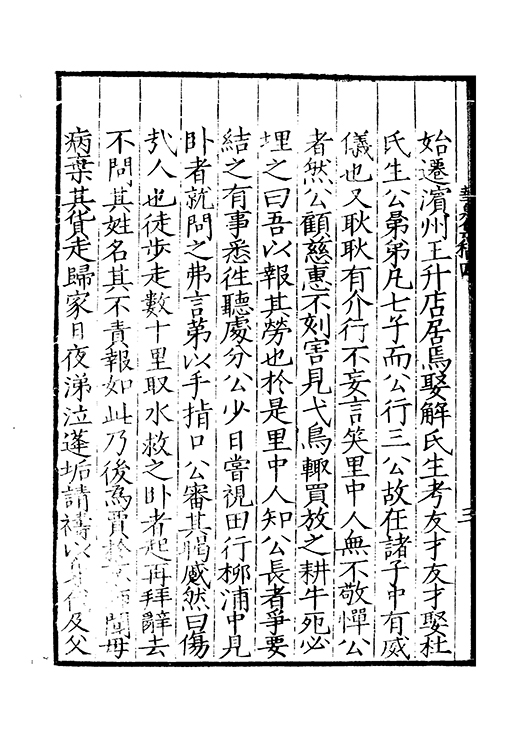 始遷濱州王升店居焉娶解氏生考友才友才娶杜
氏生公㬅弟凡七子而公行三公故在諸子中有威
儀也又耿耿有介行不妄言笑里中人無不敬憚公
者然公顧慈惠不刻害見弋鳥輙買放之耕牛死必
埋之曰吾以報其勞也於是里中人知公長者爭要
結之有事悉徃聽處分公少日嘗視田行柳浦中見
卧者就問之弗言苐以手指口公審其暍慼然曰傷
㢤人也徒步走數十里取水救之卧者起再拜辭去
不問其姓名其不責報如此乃後為賈 聞母
病棄其貨走歸家日夜涕泣蓬垢請禱以 及父
三